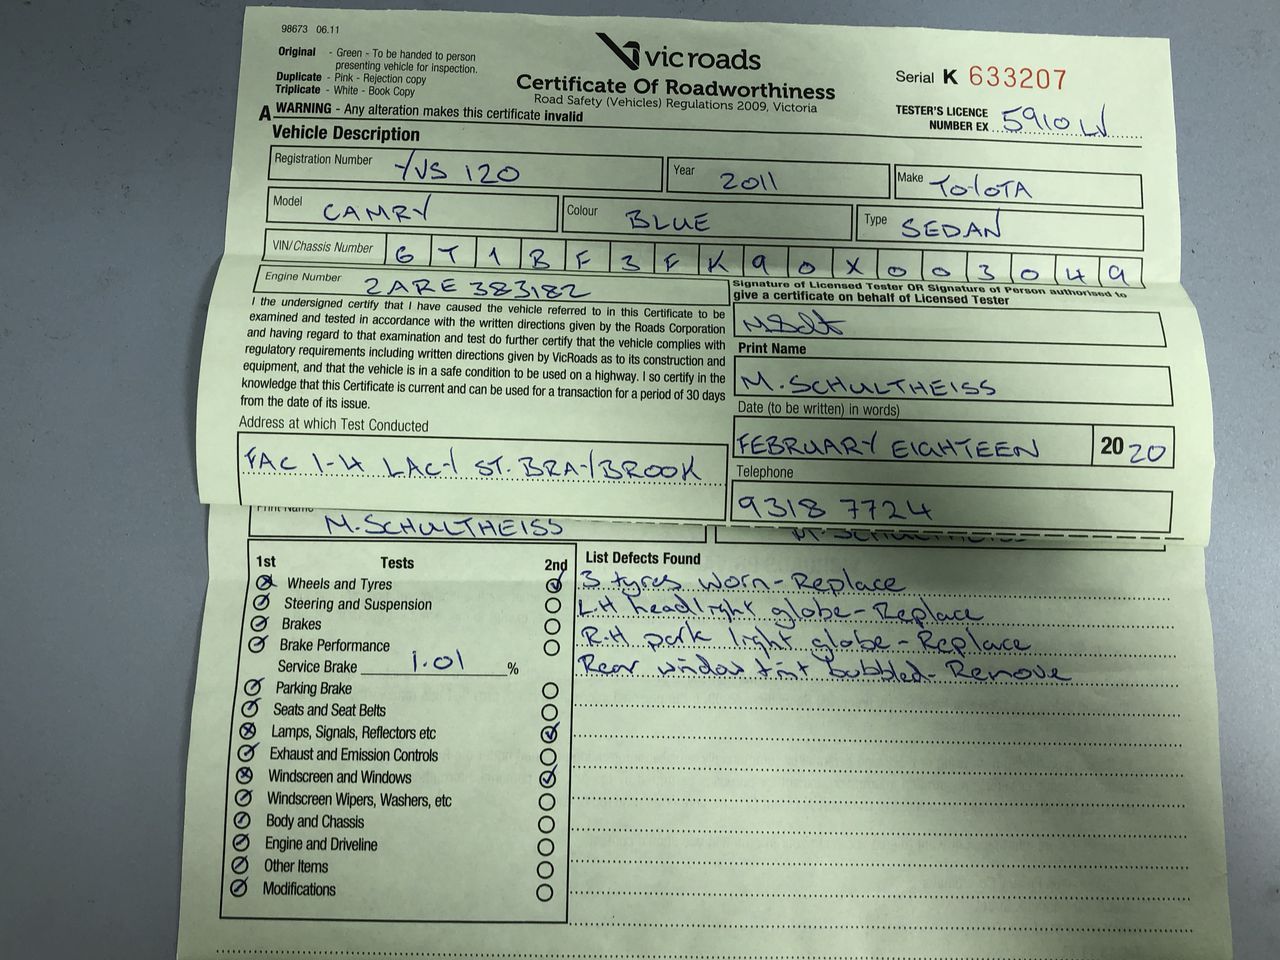 98673 06.11
Original - Green - To be handed to person
presenting vehicle for inspection.
Duplicate - Pink - Rejection copy
Triplicate - White - Book Copy
vicroads
Certificate Of Roadworthiness
Road Safety (Vehicles) Regulations 2009, Victoria
Serial K 633207
TESTER'S LICENCE
NUMBER EX 5910 LV
A WARNING - Any alteration makes this certificate invalid
Vehicle Description
Registration Number YVS 120
Year 2011
Make TOYOTA
Model CAMRY
Colour BLUE
Type SEDAN
VIN/Chassis Number 6 T 1 B F 3 F K 9 0 X 0 0 3 0 4 9
Engine Number 2ARE 383182
I the undersigned certify that I have caused the vehicle referred to in this Certificate to be
examined and tested in accordance with the written directions given by the Roads Corporation
and having regard to that examination and test do further certify that the vehicle complies with
regulatory requirements including written directions given by VicRoads as to its construction and
equipment, and that the vehicle is in a safe condition to be used on a highway. I so certify in the
knowledge that this Certificate is current and can be used for a transaction for a period of 30 days
from the date of its issue.
Address at which Test Conducted
FAC 1-4 LACY ST. BRAYBROOK
Signature of Licensed Tester OR Signature of Person authorised to
give a certificate on behalf of Licensed Tester
Print Name
M. SCHULTHEISS
Date (to be written) in words)
FEBRUARY EIGHTEEN 20 20
Telephone
9318 7724
Print Name
M. SCHULTHEISS
M. SCHULTHEISS
1st Tests 2nd
Wheels and Tyres
Steering and Suspension
Brakes
Brake Performance
Service Brake 1.01 %
Parking Brake
Seats and Seat Belts
Lamps, Signals, Reflectors etc
Exhaust and Emission Controls
Windscreen and Windows
Windscreen Wipers, Washers, etc
Body and Chassis
Engine and Driveline
Other Items
Modifications
List Defects Found
3 tyres worn - Replace
L.H headlight globe - Replace
R.H park light globe - Replace
Rear window tint bubbled - Remove